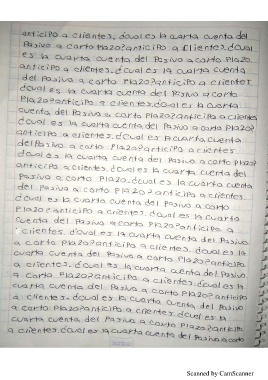 anticipo a clientes. ¿cual es la cuarta cuenta del
Pasivo a corto Plazo? anticipo a clientes. ¿cual
es la cuarta cuenta del Pasivo a corto Plazo
anticipo a clientes. ¿cual es la cuarta cuenta
del Pasivo a corto Plazo? anticipo a clientes
¿cual es la cuarta cuenta del Pasivo a corto
Plazo? anticipo a clientes. ¿cual es la cuarta
cuenta del Pasivo a corto Plazo? anticipo a clientes
¿cual es la cuarta cuenta del Pasivo a corto Plazo?
anticipo a clientes. ¿cual es la cuarta cuenta
del Pasivo a corto Plazo? anticipo a clientes
¿cual es la cuarta cuenta del Pasivo a corto Plazo?
anticipo a clientes. ¿cual es la cuarta cuenta del
Pasivo a corto Plazo. ¿cual es la cuarta cuenta
del Pasivo a corto Plazo? anticipo a clientes.
¿cual es la cuarta cuenta del Pasivo a corto
Plazo? anticipo a clientes. ¿cual es la cuarta
cuenta del Pasivo a corto Plazo? anticipo a
clientes. ¿cual es la cuarta cuenta del Pasivo
a corto Plazo? anticipo a clientes. ¿cual es la
cuarta cuenta del Pasivo a corto Plazo? anticipo
a clientes. ¿cual es la cuarta cuenta del Pasivo
a corto Plazo? anticipo a clientes. ¿cual es la
cuarta cuenta del Pasivo a corto Plazo? anticipo
a clientes. ¿cual es la cuarta cuenta del Pasivo
a corto Plazo? anticipo a clientes. ¿cual es la
cuarta cuenta del Pasivo a corto Plazo? anticipo
a clientes. ¿cual es la cuarta cuenta del Pasivo a corto
Scanned by CamScanner